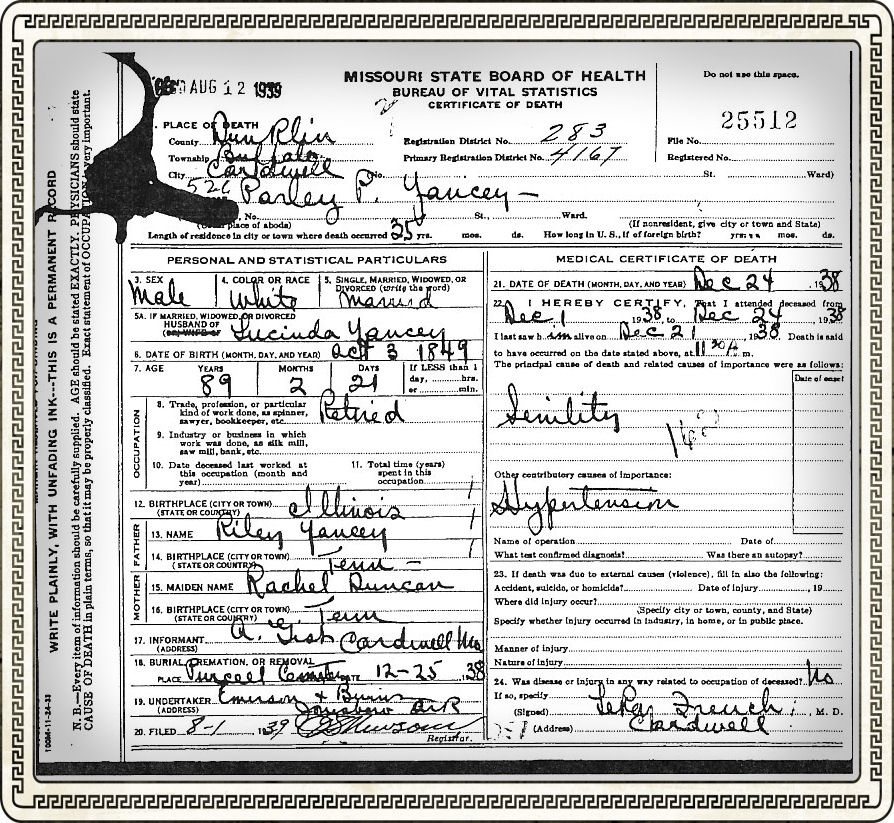 REC'D AUG 12 1939
MISSOURI STATE BOARD OF HEALTH
BUREAU OF VITAL STATISTICS
CERTIFICATE OF DEATH
Do not use this space.
25512
1. PLACE OF DEATH
County Dunklin
Township Buffalo
City Cardwell No. St. Ward)
Registration District No. 283
Primary Registration District No. 4167
File No.
Registered No.
526 Parley P. Yancey
No. St., Ward.
place of abode) (If nonresident, give city or town and State)
Length of residence in city or town where death occurred 35 yrs. mos. ds. How long in U. S., if of foreign birth? yrs. mos. ds.
WRITE PLAINLY, WITH UNFADING INK---THIS IS A PERMANENT RECORD
N. B.—Every item of information should be carefully supplied. AGE should be stated EXACTLY. PHYSICIANS should state
CAUSE OF DEATH in plain terms, so that it may be properly classified. Exact statement of OCCUPATION very important.
100M-11-24-33
PERSONAL AND STATISTICAL PARTICULARS
3. SEX Male
4. COLOR OR RACE White
5. SINGLE, MARRIED, WIDOWED, OR DIVORCED (write the word) Married
5A. IF MARRIED, WIDOWED, OR DIVORCED
HUSBAND OF
(OR) WIFE OF Lucinda Yancey
6. DATE OF BIRTH (MONTH, DAY, AND YEAR) Oct 3 1849
7. AGE YEARS MONTHS DAYS If LESS than 1
day, hrs.
or min.
89 2 21
OCCUPATION
8. Trade, profession, or particular
kind of work done, as spinner,
sawyer, bookkeeper, etc. Retired
9. Industry or business in which
work was done, as silk mill,
saw mill, bank, etc.
10. Date deceased last worked at
this occupation (month and
year)
11. Total time (years)
spent in this
occupation
12. BIRTHPLACE (CITY OR TOWN)
(STATE OR COUNTRY) Illinois
FATHER
13. NAME Riley Yancey
14. BIRTHPLACE (CITY OR TOWN)
(STATE OR COUNTRY) Tenn
MOTHER
15. MAIDEN NAME Rachel Duncan
16. BIRTHPLACE (CITY OR TOWN)
(STATE OR COUNTRY) Tenn
17. INFORMANT
(ADDRESS) Cardwell Mo
18. BURIAL, CREMATION, OR REMOVAL
PLACE Purcell Cemetery DATE 12-25 1938
19. UNDERTAKER Emerson
(ADDRESS) Jonesboro Ark
20. FILED 8-1 1939
Registrar.
MEDICAL CERTIFICATE OF DEATH
21. DATE OF DEATH (MONTH, DAY, AND YEAR) Dec 24 1938
22. I HEREBY CERTIFY, That I attended deceased from
Dec 1 1938, to Dec 24 1938
I last saw him alive on Dec 21 1938 Death is said
to have occurred on the date stated above, at 11 30 A m.
The principal cause of death and related causes of importance were as follows:
Date of onset
Senility
Other contributory causes of importance:
Hypertension
Name of operation Date of
What test confirmed diagnosis? Was there an autopsy?
23. If death was due to external causes (violence), fill in also the following:
Accident, suicide, or homicide? Date of injury , 19
Where did injury occur?
(Specify city or town, county, and State)
Specify whether injury occurred in industry, in home, or in public place.
Manner of injury
Nature of injury
24. Was disease or injury in any way related to occupation of deceased? No
If so, specify
(Signed) French, M. D.
(Address) Cardwell